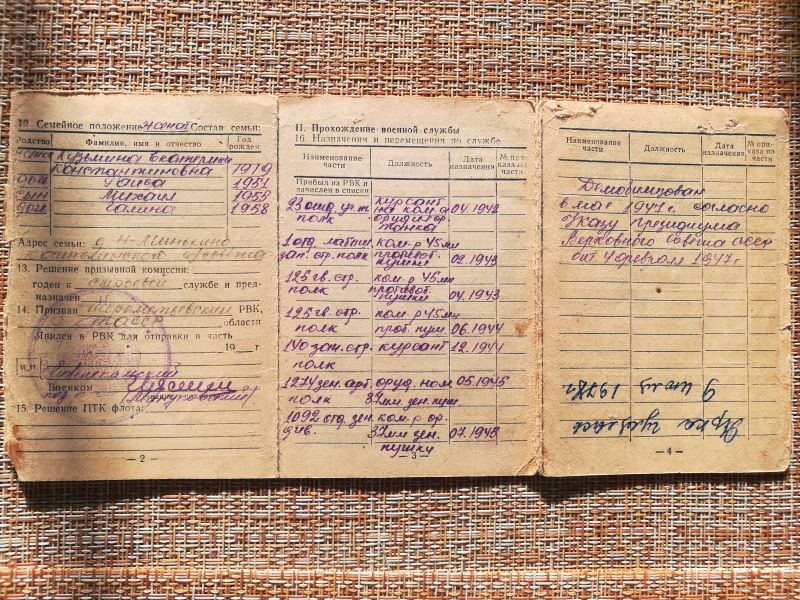 12. Семейное положение женат Состав семьи:
Родство Фамилия, имя и отчество Год рожден
Кузьмина Екатерина
Константиновна 1919
Раиса 1951
сын Михаил 1953
доч Галина 1958
Адрес семьи:
13. Решение призывной комиссии:
годен к строевой службе и пред-
назначен
14. Призван РВК,
ТАССР области
Явился в РВК для отправки в часть
19 г
м.п.
Военком
15. Решение ПТК флота:
— 2 —
II. Прохождение военной службы
16. Назначения и перемещения по службе
Наименование части Должность Дата назначения № приказа по части
Прибыл из РВК и зачислен в списки
23 отд. уч. т. полк курсант на ком-а орудия ср. танка 04.1942
1 отд. латыш. зап. стр. полк ком-р 45мм противот. пушки 02.1943
125 гв. стр. полк ком-р 45мм противот. пушки 04.1943
125 гв. стр. полк ком-р 45мм прот. пуш. 06.1944
140 зап. стр. полк курсант 12.1944
1274 зен. арт. полк оруд. ном 37мм зен. пуш 05.1945
1092 отд. зен. див. ком-р ор. 37мм зен. пушки 07.1948
— 3 —
Наименование части Должность Дата назначения № приказа по части
Демобилизован
в мае 1947 г. согласно
Указу президиума
Верховного совета СССР
от 4 февраля 1947 г
9 1978 г
— 4 —